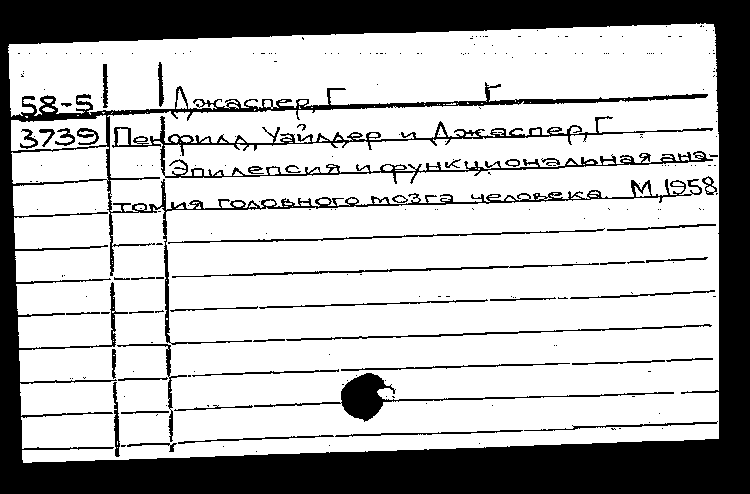 58-5 Джаспер, Г Г
3739 Пенфилд, Уайлдер и Джаспер, Г
Эпилепсия и функциональная ана-
томия головного мозга человека. М, 1958